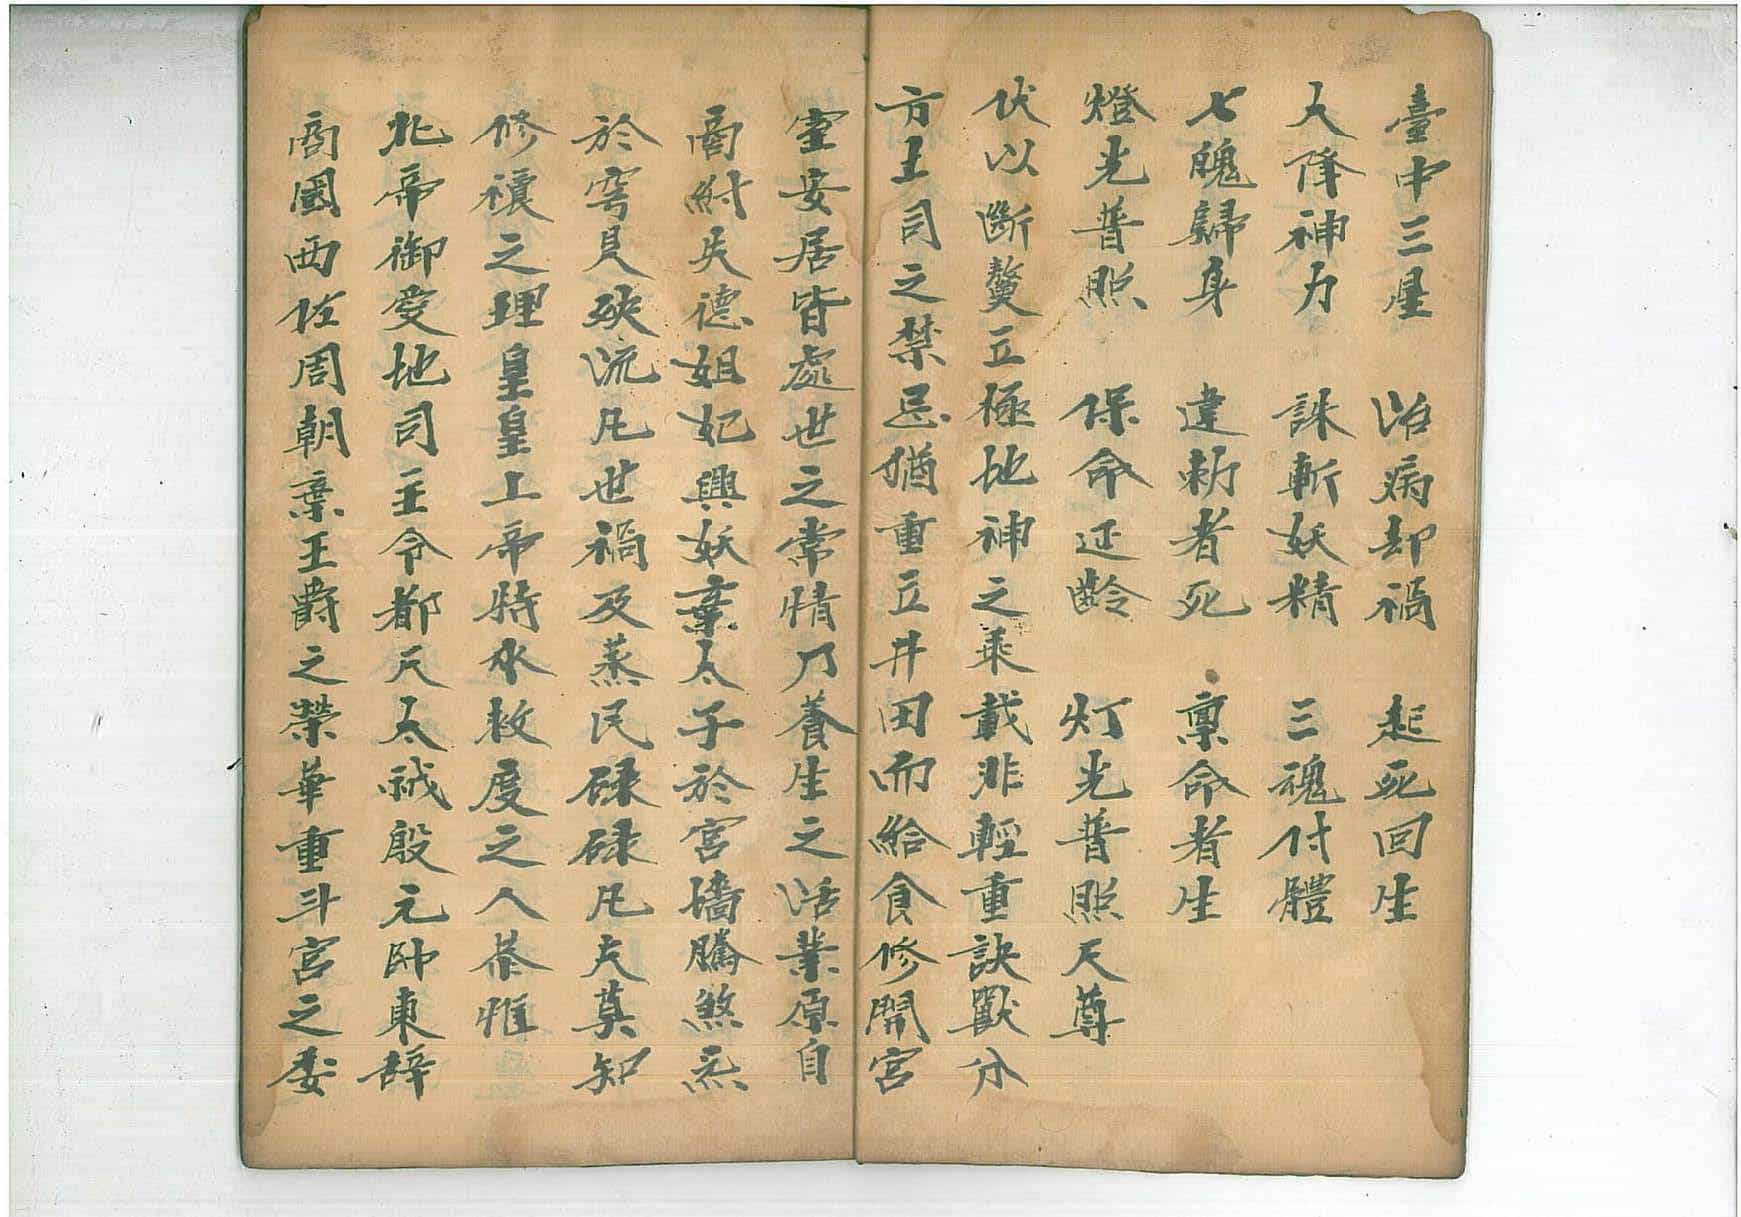 臺中三星 治病却禍 起死回生
大降神力 誅斬妖精 三魂付體
七魄歸身 違勅者死 稟命者生
燈光普照 保命延齡 灯光普照天尊
伏以斷鰲立極地神之乘載非輕重訣獸分
方土司之禁忌猶重立井田而給食修開宮
室安居皆處世之常情乃養生之活業原自
商紂失德妲妃興妖棄太子於宮墻騰煞炁
於穹旻殃流凡世禍及蒸民碌碌凡夫莫知
修禳之理皇皇上帝特永救度之人恭惟
北帝御愛地司主令都天太歲殷元帥東辞
商國西佐周朝棄王爵之榮華重斗宮之委